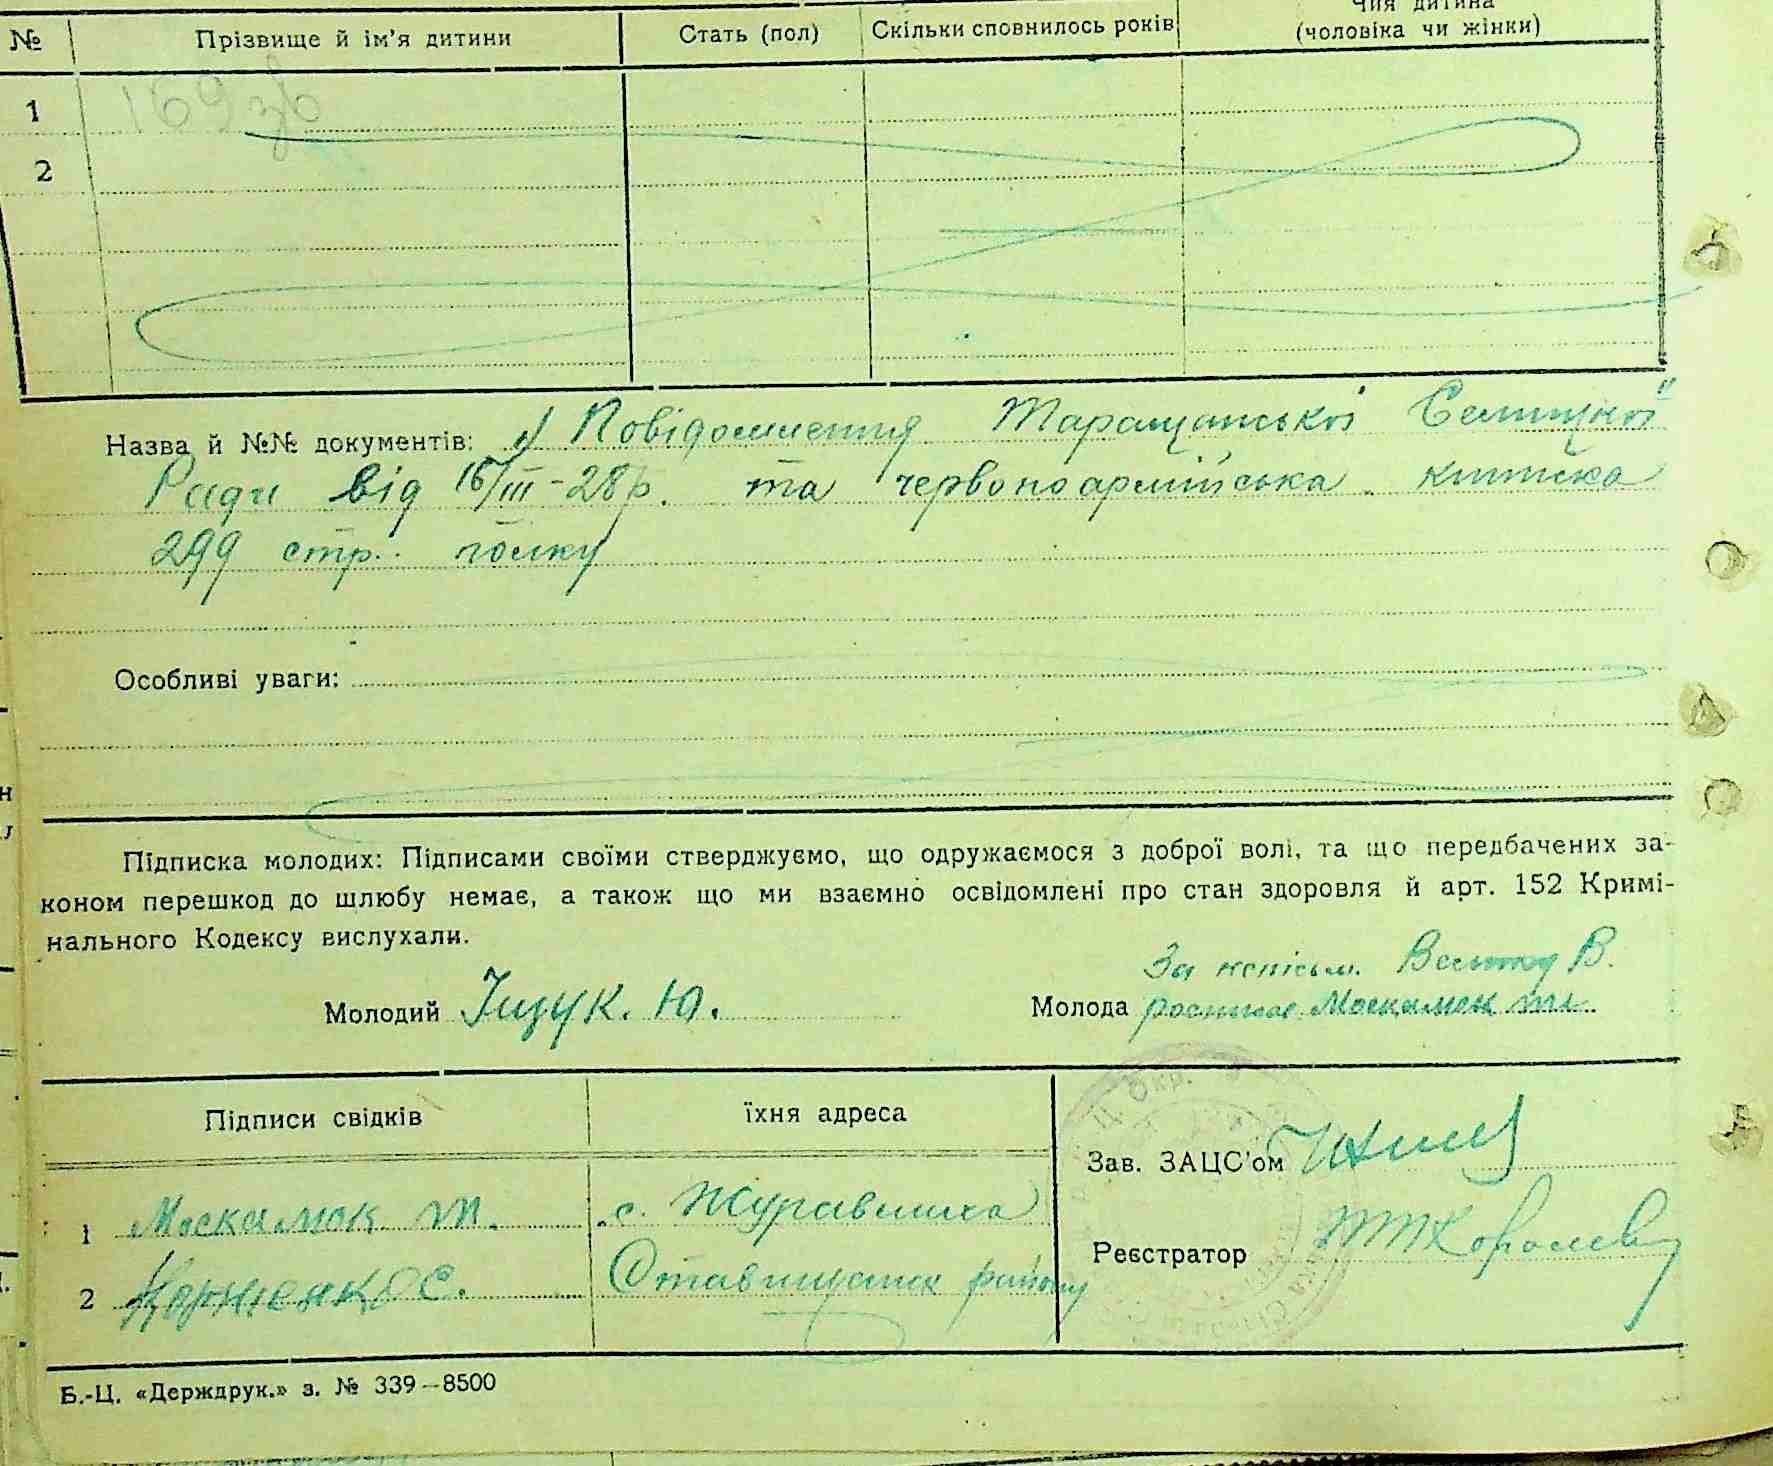 Чия дитина
№ Прізвище й ім'я дитини Стать (пол) Скільки сповнилось років (чоловіка чи жінки)
1 169 зв
2
Назва й №№ документів: 1) Повідомлення Таращанської Селищної
Ради від 16/III-28р. та червоноармійська книжка
299 стр. полку
Особливі уваги:
Підписка молодих: Підписами своїми стверджуємо, що одружаємося з доброї волі, та що передбачених за-
коном перешкод до шлюбу немає, а також що ми взаємно освідомлені про стан здоровля й арт. 152 Кримі-
нального Кодексу вислухали.
За неписьм. В.
Молодий Іщук. Ю. Молода Москалюк
Підписи свідків їхня адреса
Зав. ЗАЦС'ом
1 Москалюк М. с. Журавлиха
Реєстратор
2 Корнієнко С. Ставищанск району
Б.-Ц. «Держдрук.» з. № 339—8500